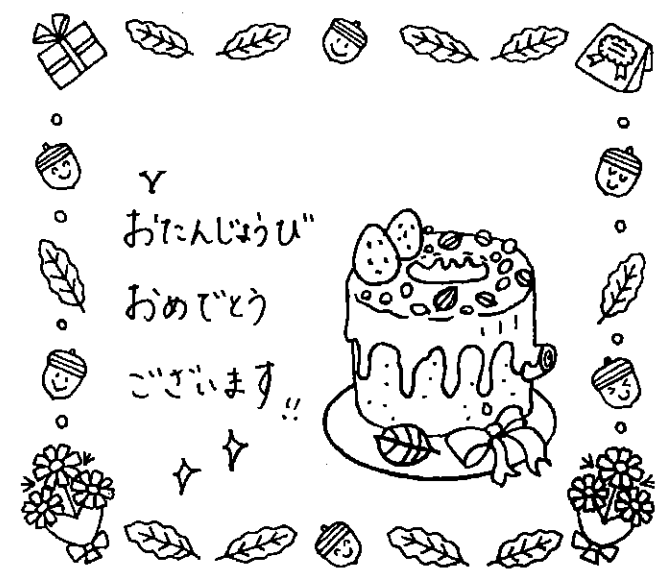 おたんじょうび
おめでとう
ございます!!